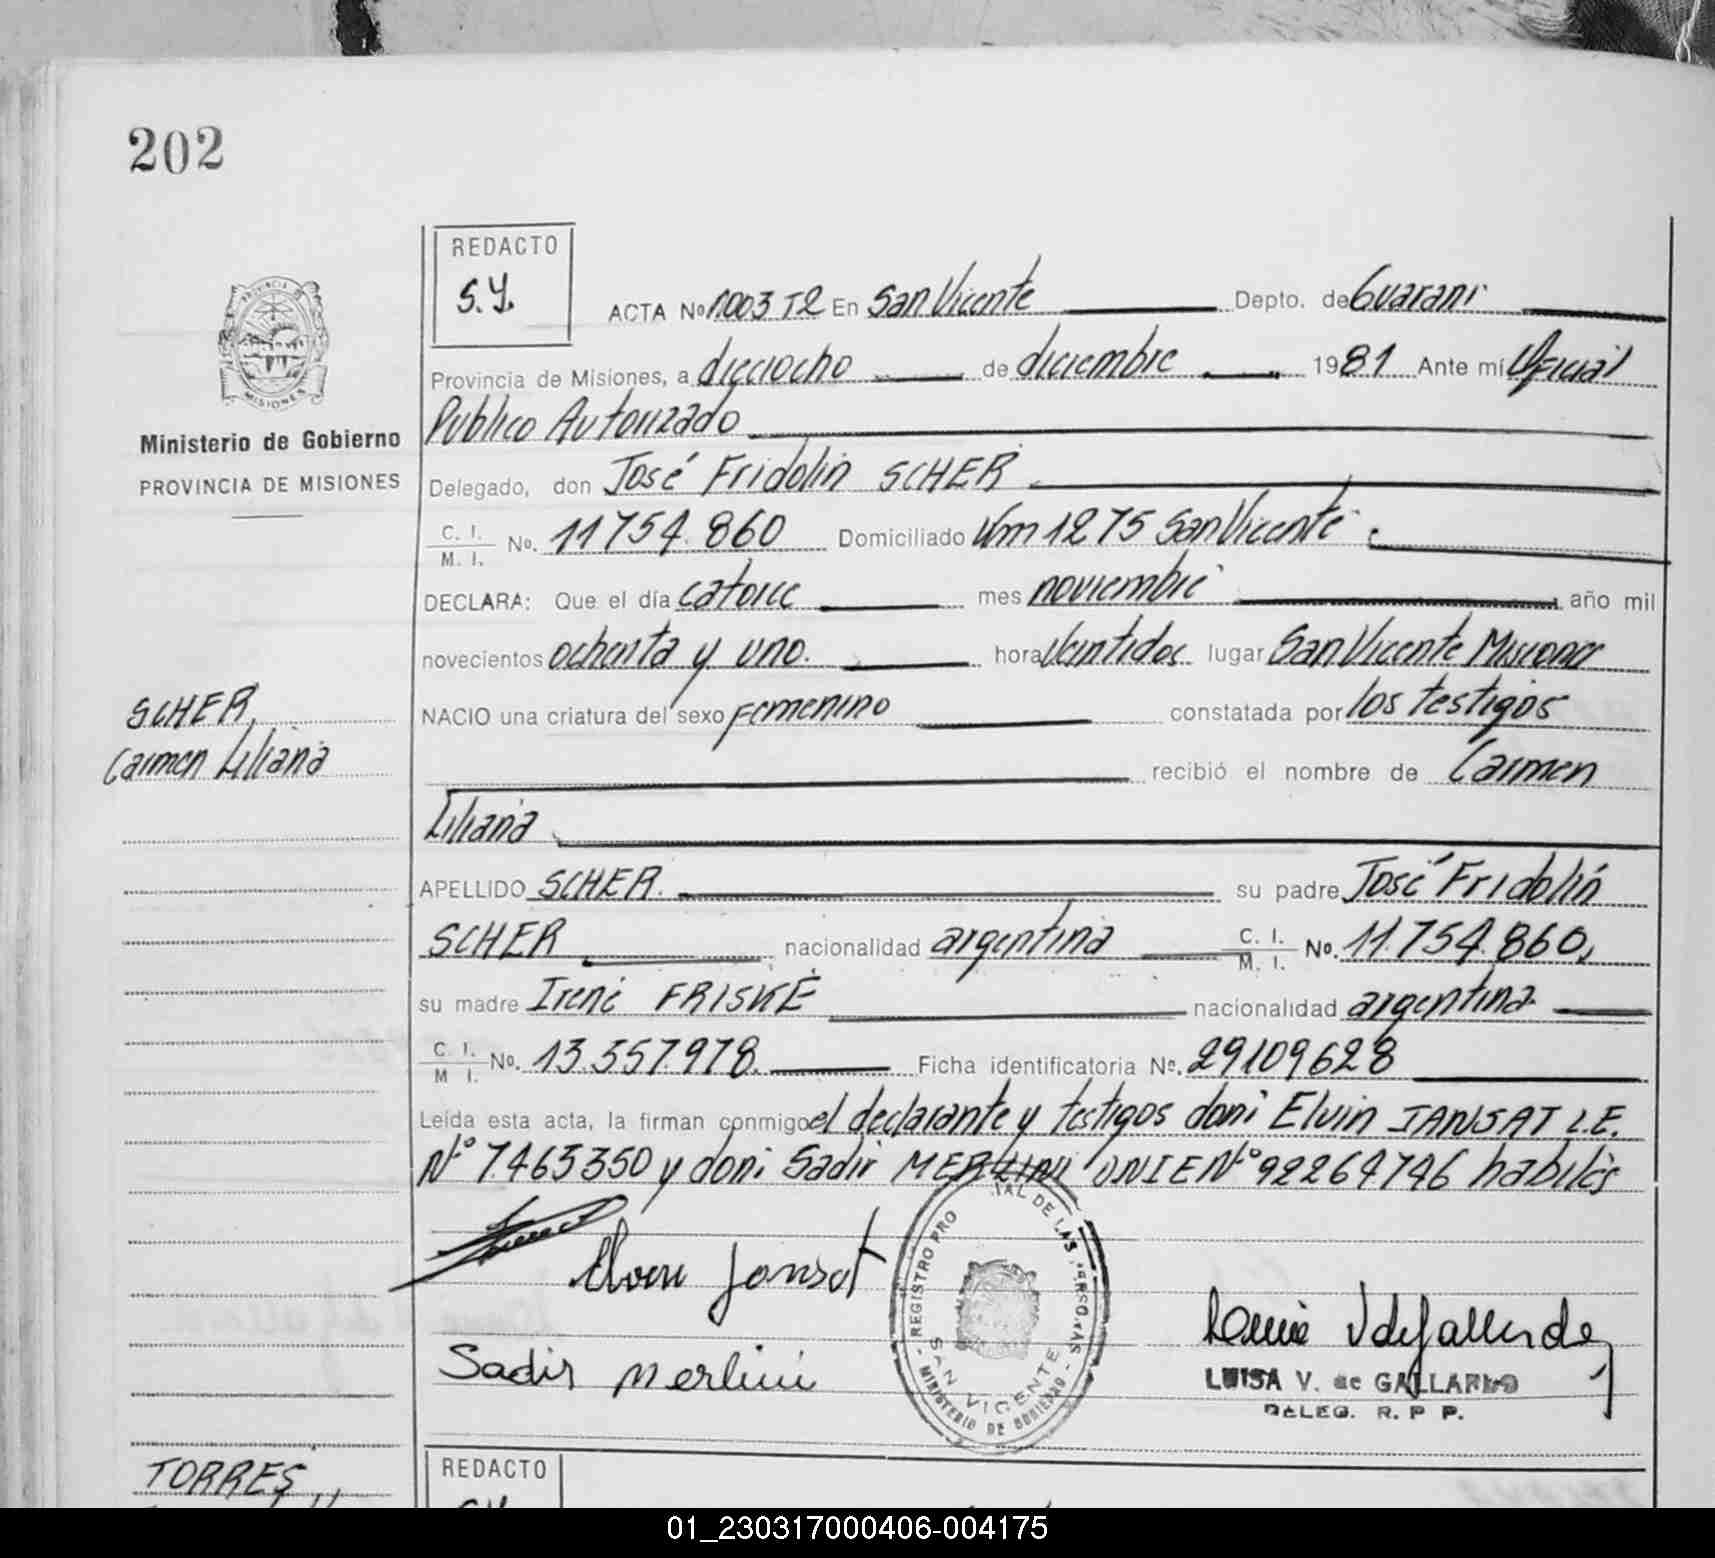 202
REDACTO
S.Y.
ACTA No 1003 T2 En San Vicente Depto. de Guaraní
Provincia de Misiones, a dieciocho de diciembre 1981 Ante mí Oficial
Publico Autorizado
Ministerio de Gobierno
PROVINCIA DE MISIONES
Delegado, don José Fridolin SCHER
C. I. / M. I. No. 11754.860 Domiciliado Km 1275 San Vicente
DECLARA: Que el día catorce mes noviembre año mil
novecientos ochenta y uno. hora Veintidos lugar San Vicente Misiones
SCHER,
Carmen Liliana
NACIO una criatura del sexo femenino constatada por los testigos
recibió el nombre de Carmen
Liliana
APELLIDO SCHER. su padre José Fridolin
SCHER nacionalidad argentina C. I. / M. I. No. 11.754.860.
su madre Irene FRISKE nacionalidad argentina
C. I. / M I. No. 13.357.978. Ficha identificatoria No. 29109628
Leída esta acta, la firman conmigo el declarante y testigos doni Elvin JANSAT L.E.
Nº 7.463350 y doni Sadir MERLINI DNIE Nº 92264746 habiles
Elvin Jansat
Sadir Merlini
REGISTRO PRO IAL DE LAS PERSONAS
SAN VICENTE
MINISTERIO DE GOBIERNO
LUISA V. de GALLARDO
DELEG. R. P P.
TORRES
REDACTO
01_230317000406-004175